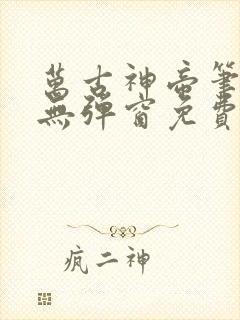 萬古神帝筆
無彈窗免費
瘋二神